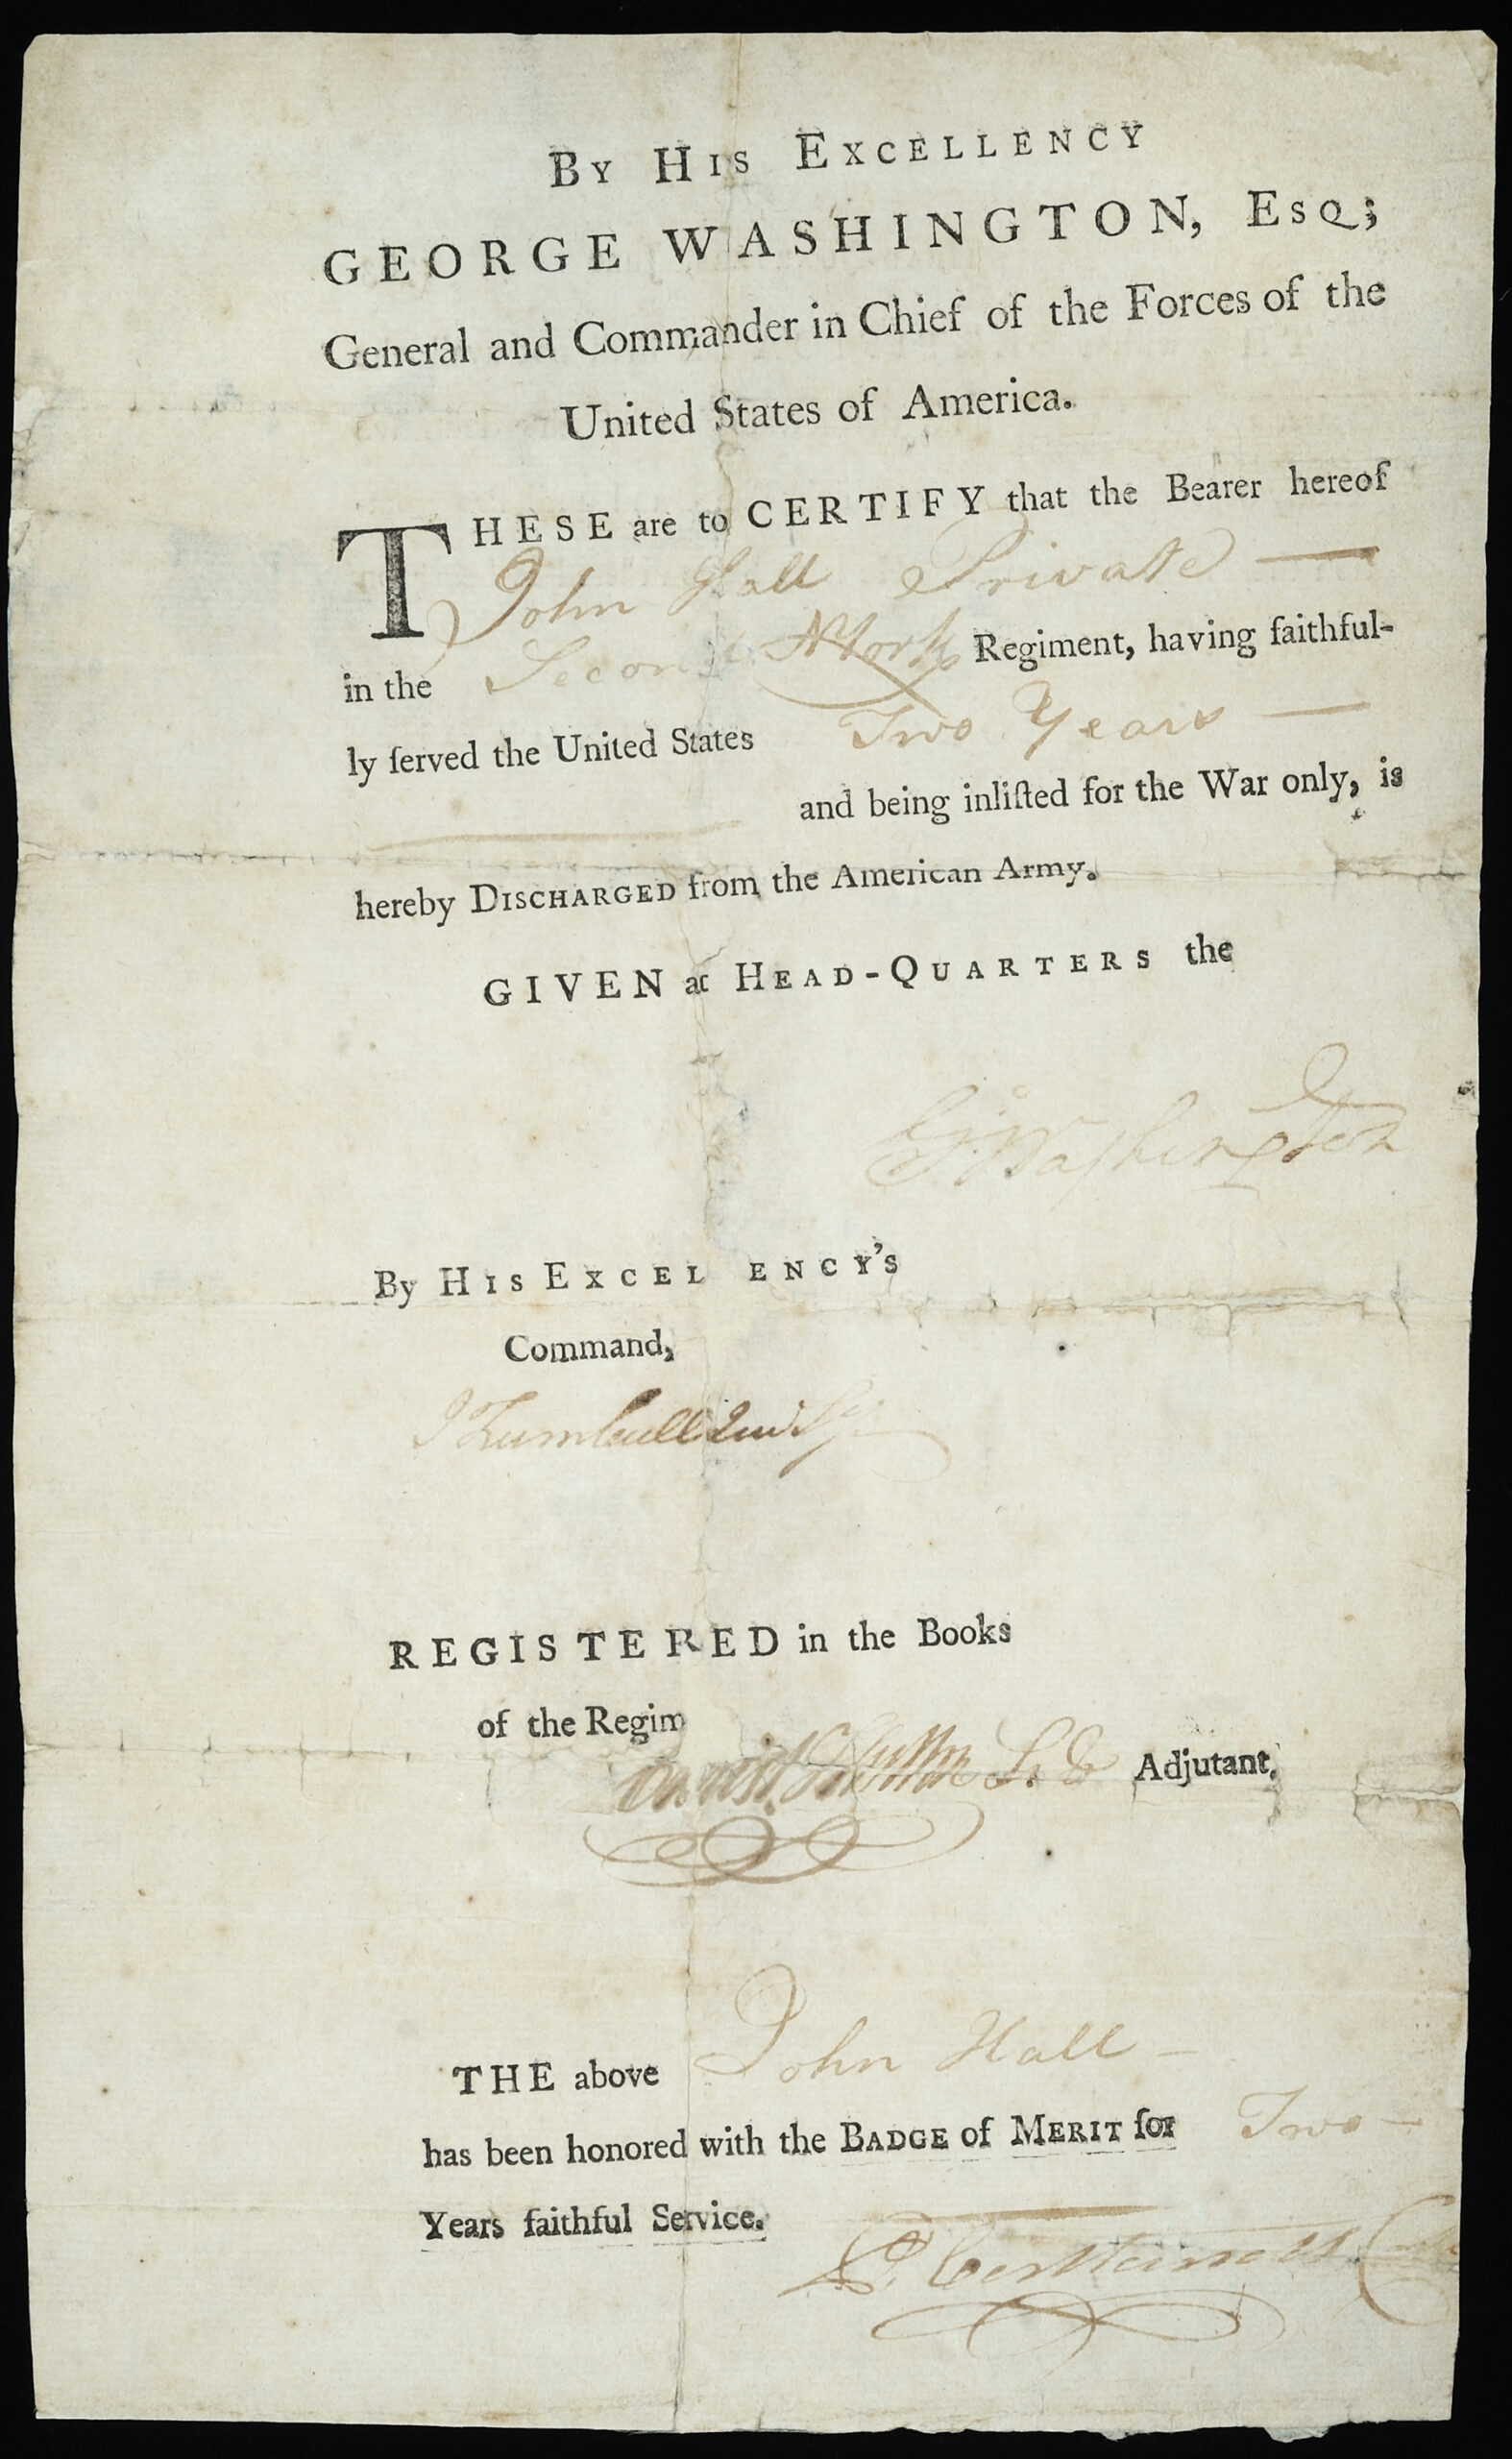 By His Excellency
GEORGE WASHINGTON, Esq;
General and Commander in Chief of the Forces of the
United States of America.
THESE are to CERTIFY that the Bearer hereof
John Hall Private —
in the Second NYork Regiment, having faithful-
ly ſerved the United States Two Years —
and being inliſted for the War only, is
hereby Discharged from the American Army.
GIVEN at Head-Quarters the
G:Washington
By His Excel ency's
Command,
J Trumbull Junr Sy
REGISTERED in the Books
of the Regim
Adjutant,
THE above John Hall —
has been honored with the Badge of Merit for Two —
Years faithful Service.
P. Cortlandt